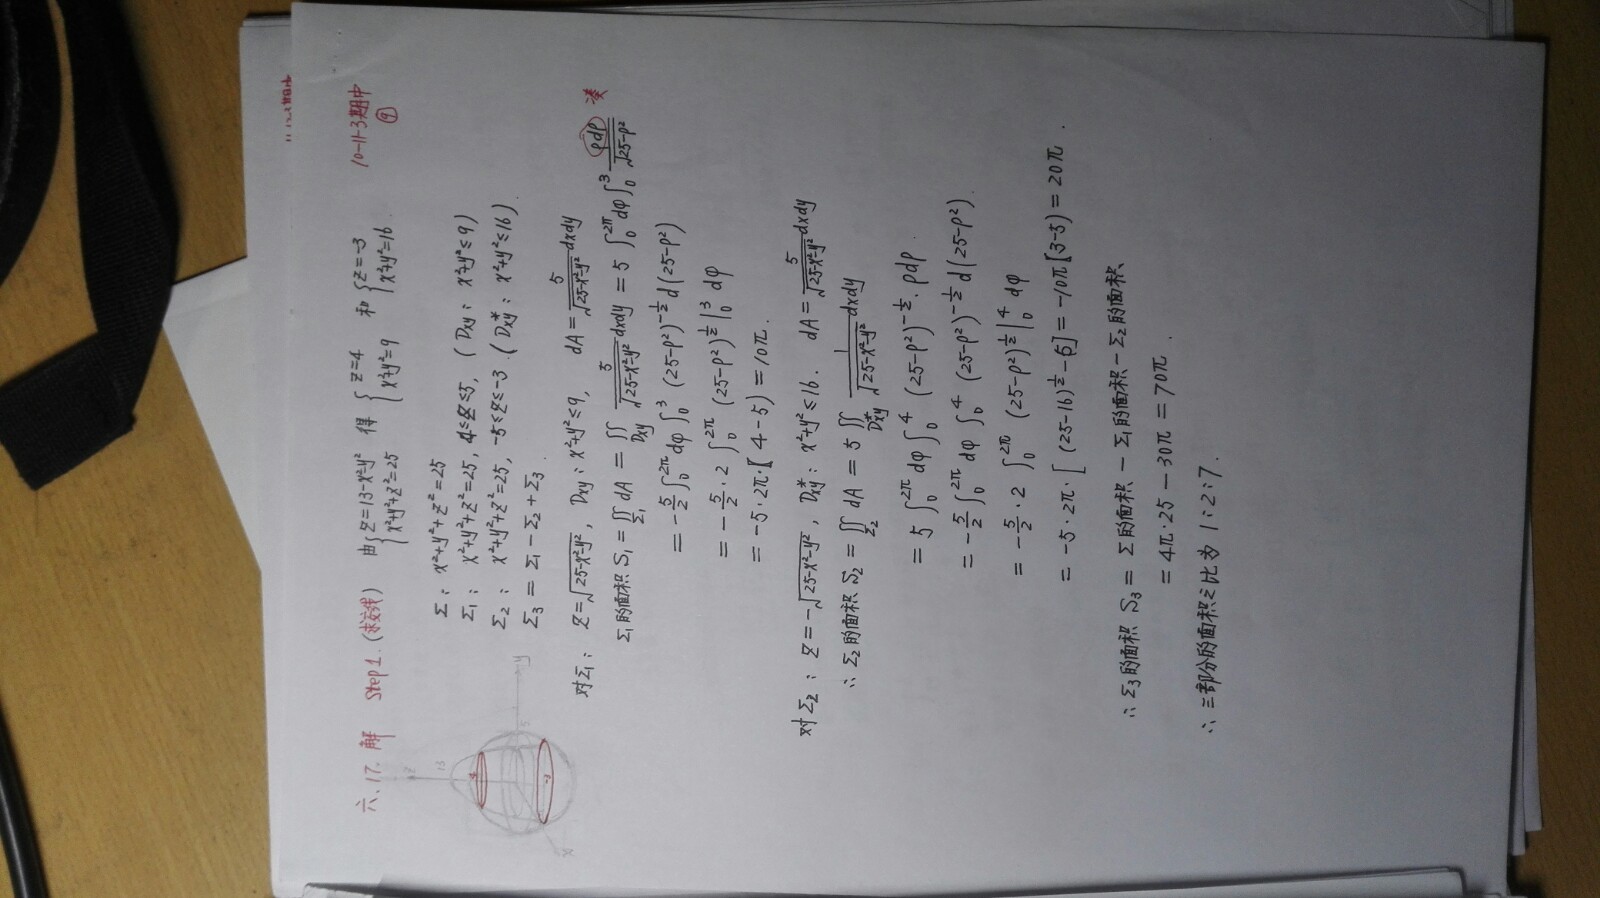 11-12-2期中
六、17. 解 Step 1. (求交线) 由{z=13-x²-y² x²+y²+z²=25 得 {z=4 x²+y²=9 和 {z=-3 x²+y²=16. 10-11-3期中 ⑨
Σ: x²+y²+z²=25
Σ₁: x²+y²+z²=25, 4≤z≤5, (Dxy: x²+y²≤9)
Σ₂: x²+y²+z²=25, -5≤z≤-3. (Dxy*: x²+y²≤16).
Σ₃ = Σ₁ - Σ₂ + Σ₃.
z 13 4 5 y -3 x
对Σ₁: z=√(25-x²-y²), Dxy: x²+y²≤9, dA = 5/√(25-x²-y²) dxdy
Σ₁的面积 S₁ = ∬_Σ₁ dA = ∬_Dxy 5/√(25-x²-y²) dxdy = 5∫₀^2π dφ ∫₀³ ρdρ/√(25-ρ²) 凑
= -5/2 ∫₀^2π dφ ∫₀³ (25-ρ²)^-½ d(25-ρ²)
= -5/2 · 2 ∫₀^2π (25-ρ²)^½ |₀³ dφ
= -5·2π·[4-5) = 10π.
对Σ₂: z=-√(25-x²-y²), Dxy*: x²+y²≤16. dA = 5/√(25-x²-y²) dxdy
∴ Σ₂的面积 S₂ = ∬_Σ₂ dA = 5∬_Dxy* 1/√(25-x²-y²) dxdy
= 5∫₀^2π dφ ∫₀⁴ (25-ρ²)^-½ · ρdρ.
= -5/2 ∫₀^2π dφ ∫₀⁴ (25-ρ²)^-½ d(25-ρ²).
= -5/2 · 2 ∫₀^2π (25-ρ²)^½ |₀⁴ dφ
= -5·2π·[(25-16)^½ - 5] = -10π[3-5) = 20π.
∴ Σ₃的面积 S₃ = Σ的面积 - Σ₁的面积 - Σ₂的面积.
= 4π·25 - 30π = 70π.
∴ 三部分的面积之比为 1:2:7.